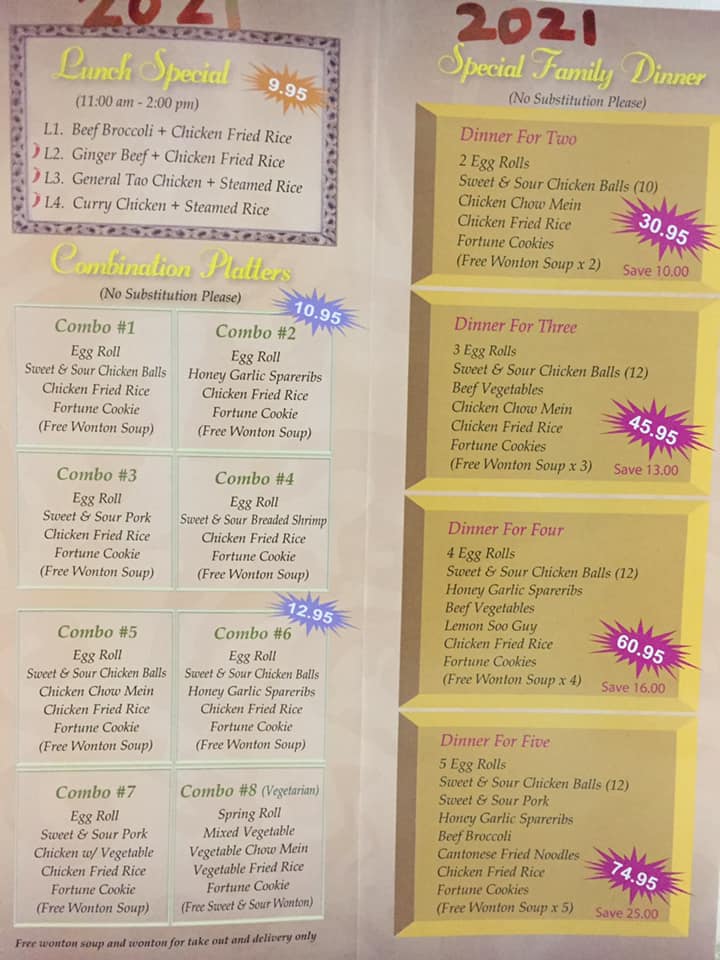 2021
Lunch Special
9.95
(11:00 am - 2:00 pm)
L1. Beef Broccoli + Chicken Fried Rice
L2. Ginger Beef + Chicken Fried Rice
L3. General Tao Chicken + Steamed Rice
L4. Curry Chicken + Steamed Rice
Combination Platters
(No Substitution Please)
10.95
Combo #1
Egg Roll
Sweet & Sour Chicken Balls
Chicken Fried Rice
Fortune Cookie
(Free Wonton Soup)
Combo #2
Egg Roll
Honey Garlic Spareribs
Chicken Fried Rice
Fortune Cookie
(Free Wonton Soup)
Combo #3
Egg Roll
Sweet & Sour Pork
Chicken Fried Rice
Fortune Cookie
(Free Wonton Soup)
Combo #4
Egg Roll
Sweet & Sour Breaded Shrimp
Chicken Fried Rice
Fortune Cookie
(Free Wonton Soup)
12.95
Combo #5
Egg Roll
Sweet & Sour Chicken Balls
Chicken Chow Mein
Chicken Fried Rice
Fortune Cookie
(Free Wonton Soup)
Combo #6
Egg Roll
Sweet & Sour Chicken Balls
Honey Garlic Spareribs
Chicken Fried Rice
Fortune Cookie
(Free Wonton Soup)
Combo #7
Egg Roll
Sweet & Sour Pork
Chicken w/ Vegetable
Chicken Fried Rice
Fortune Cookie
(Free Wonton Soup)
Combo #8 (Vegetarian)
Spring Roll
Mixed Vegetable
Vegetable Chow Mein
Vegetable Fried Rice
Fortune Cookie
(Free Sweet & Sour Wonton)
Free wonton soup and wonton for take out and delivery only
2021
Special Family Dinner
(No Substitution Please)
Dinner For Two
2 Egg Rolls
Sweet & Sour Chicken Balls (10)
Chicken Chow Mein
Chicken Fried Rice
Fortune Cookies
(Free Wonton Soup x 2)
30.95
Save 10.00
Dinner For Three
3 Egg Rolls
Sweet & Sour Chicken Balls (12)
Beef Vegetables
Chicken Chow Mein
Chicken Fried Rice
Fortune Cookies
(Free Wonton Soup x 3)
45.95
Save 13.00
Dinner For Four
4 Egg Rolls
Sweet & Sour Chicken Balls (12)
Honey Garlic Spareribs
Beef Vegetables
Lemon Soo Guy
Chicken Fried Rice
Fortune Cookies
(Free Wonton Soup x 4)
60.95
Save 16.00
Dinner For Five
5 Egg Rolls
Sweet & Sour Chicken Balls (12)
Sweet & Sour Pork
Honey Garlic Spareribs
Beef Broccoli
Cantonese Fried Noodles
Chicken Fried Rice
Fortune Cookies
(Free Wonton Soup x 5)
74.95
Save 25.00